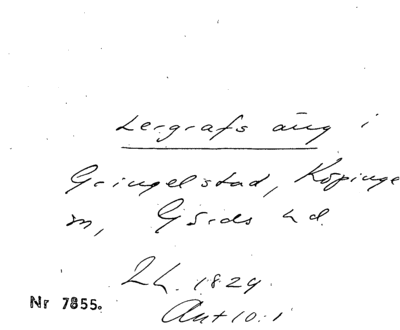 Lergrafs äng i
Gringelstad, Köpinge
sn, Gärds hd.
Lh. 1829.
Nr 7855.
Ant 10:1